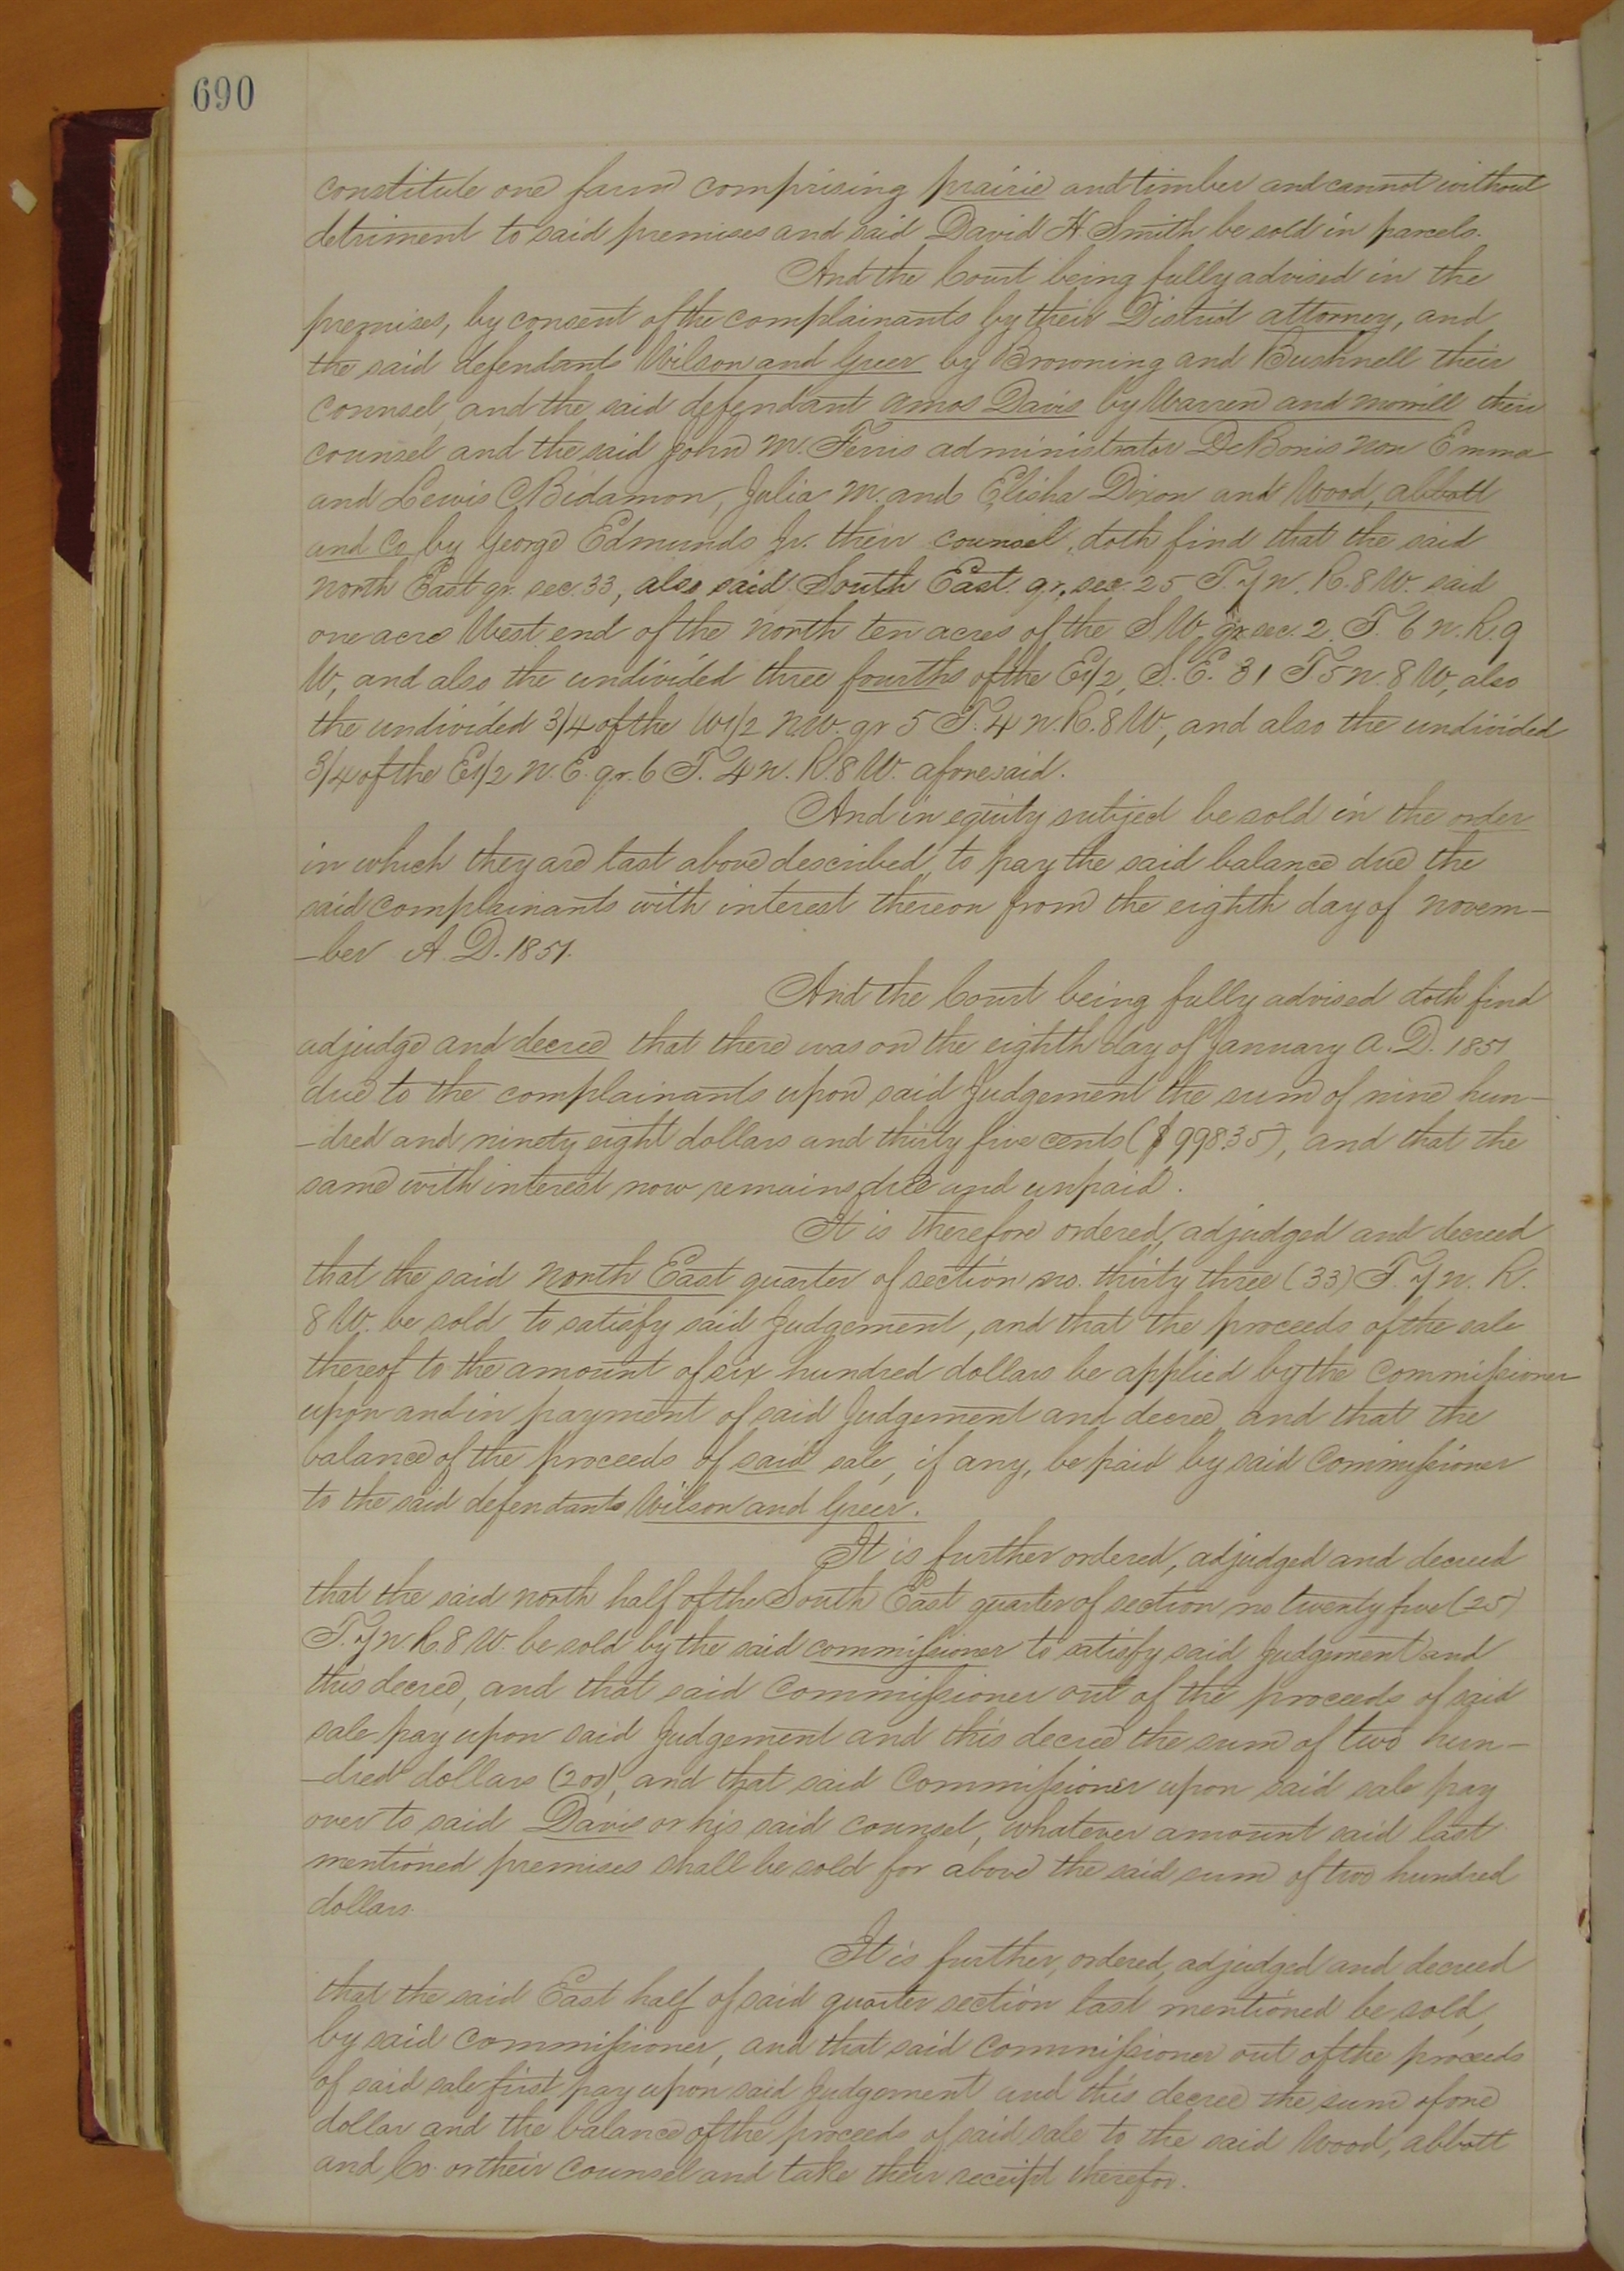 690
constitute one farm comprising prairie and timber and cannot without
detriment to said premises and said David H Smith be sold in parcels.
And the Court being fully advised in the
premises, by consent of the complainants by their District attorney, and
the said defendants Wilson and Greer by Browning and Bushnell their
counsel, and the said defendant Amos Davis by Warren and Morrill their
counsel and the said John M. Ferris administrator De Bonis non Emma
and Lewis C Bidamon, Julia M. and Elisha Dixon and Wood, abbott
and Co by George Edmunds Jr. their counsel, doth find that the said
North East qr. sec. 33, also said South East qr. sec. 25 T. 7 n. R. 8 W. said
one acre West end of the north ten acres of the S W qr sec. 2. T. 6 n. R. 9
W, and also the undivided three fourths of the E1/2, S. E. 31 T 5 n. 8 W, also
the undivided 3/4 of the W1/2 NW. qr. 5 T. 4 n. R. 8 W, and also the undivided
3/4 of the E1/2 N. E. qr. 6 T. 4 n. R. 8 W. aforesaid.
And in equity subject be sold in the order
in which they are last above described, to pay the said balance due the
said complainants with interest thereon from the eighth day of novem-
-ber A. D. 1851.
And the Court being fully advised doth find
adjudge and decree that there was on the eighth day of January A. D. 1851
due to the complainants upon said Judgement the sum of nine hun-
-dred and ninety eight dollars and thirty five cents ($998.35), and that the
same with interest now remains due and unpaid.
It is therefore ordered, adjudged and decreed
that the said North East quarter of section no. thirty three (33) T. 7 n. R.
8 W. be sold to satisfy said Judgement, and that the proceeds of the sale
thereof to the amount of six hundred dollars be applied by the Commissioner
upon and in payment of said Judgement and decree, and that the
balance of the proceeds of said sale, if any, be paid by said Commissioner
to the said defendants Wilson and Greer.
It is further ordered, adjudged and decreed
that the said north half of the South East quarter of section no twenty five (25)
T. 7 n R. 8 W. be sold by the said commissioner to satisfy said Judgement and
this decree, and that said Commissioner out of the proceeds of said
sale pay upon said Judgement and this decree the sum of two hun-
-dred dollars (200), and that said Commissioner upon said sale pay
over to said Davis or his said counsel, whatever amount said last
mentioned premises shall be sold for above the said sum of two hundred
dollars.
It is further, ordered, adjudged and decreed
that the said East half of said quarter section last mentioned be sold,
by said Commissioner, and that said Commissioner out of the proceeds
of said sale first pay upon said Judgement and this decree the sum of one
dollar and the balance of the proceeds of said sale to the said Wood, abbott
and Co. or their Counsel and take their receipt therefor.